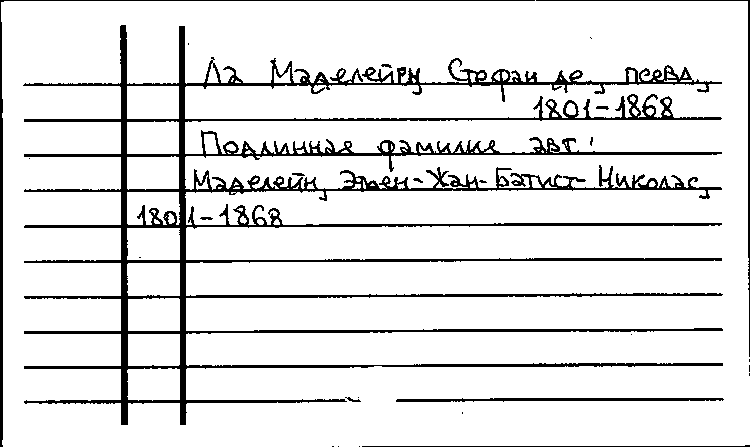 Ла Маделейн, Стефан де, псевд.,
1801-1868
Подлинная фамилия авт.:
Маделейн, Этьен-Жан-Батист-Николас,
1801-1868